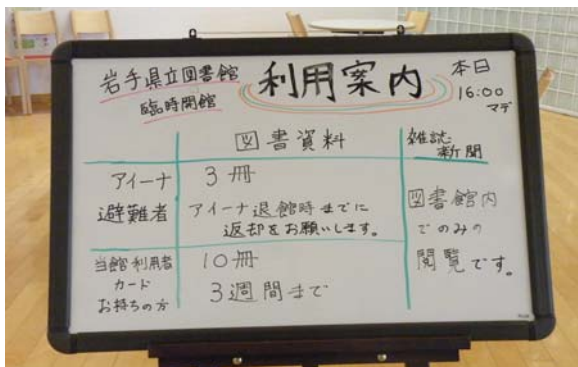 岩手県立図書館
臨時開館
利用案内
本日
16:00
マデ
図書資料
雑誌・
新聞
アイーナ
避難者
3冊
アイーナ退館時までに
返却をお願いします。
図書館内
でのみの
閲覧です。
当館利用者
カード
お持ちの方
10冊
3週間まで